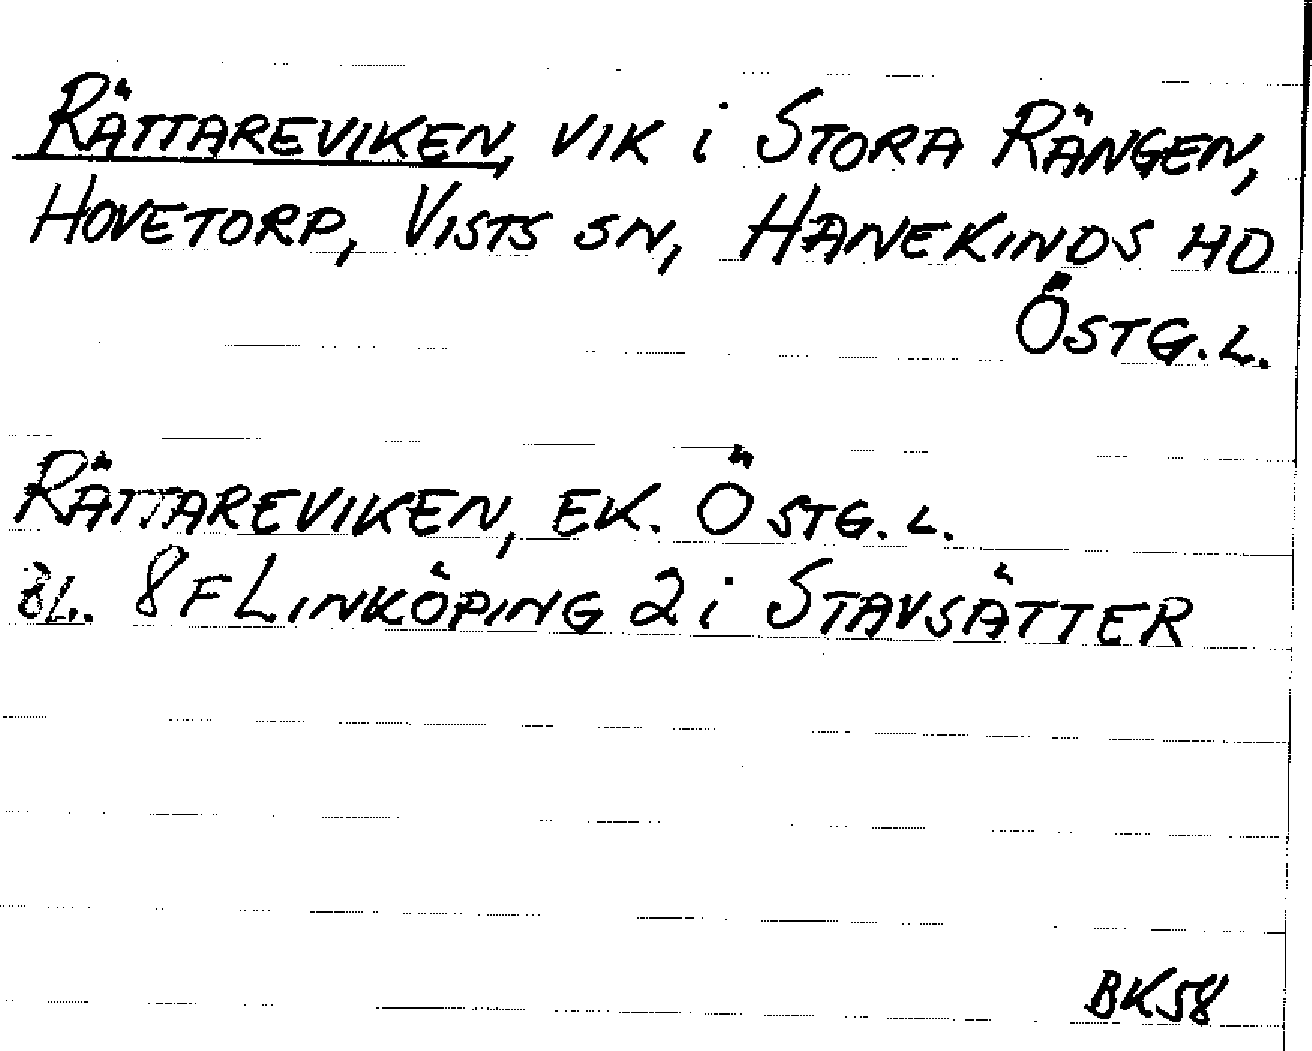 RÄTTAREVIKEN, VIK i STORA RÄNGEN,
HOVETORP, VISTS SN, HANEKINDS HD
ÖSTG.L.
RÄTTAREVIKEN, EK. ÖSTG.L.
BL. 8F LINKÖPING 2i STAVSÄTTER
BK58